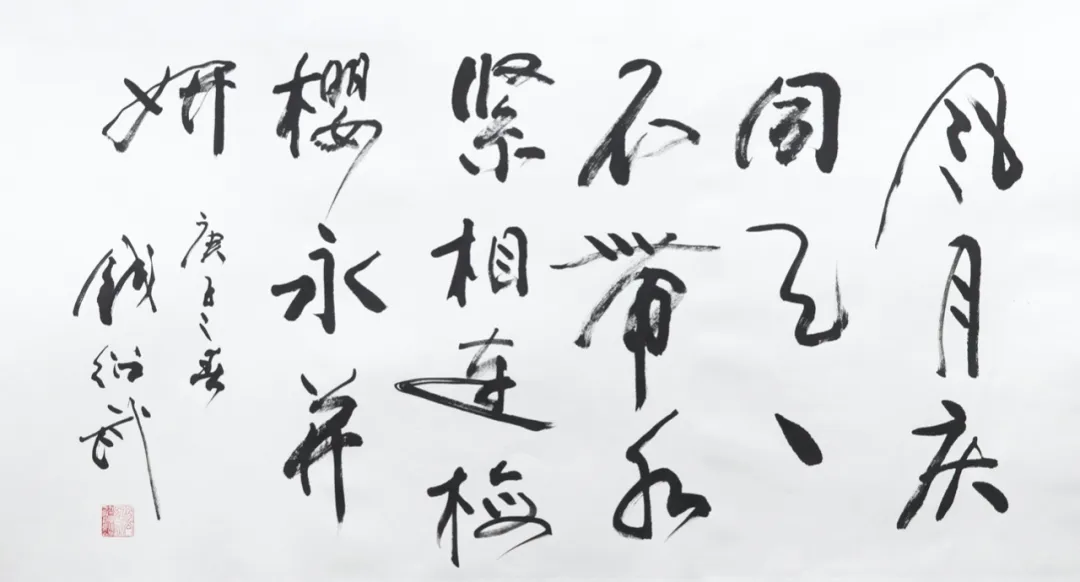 风月庆
同天一
衣带水
紧相连梅
樱永并
妍
庚子之春
钱绍武